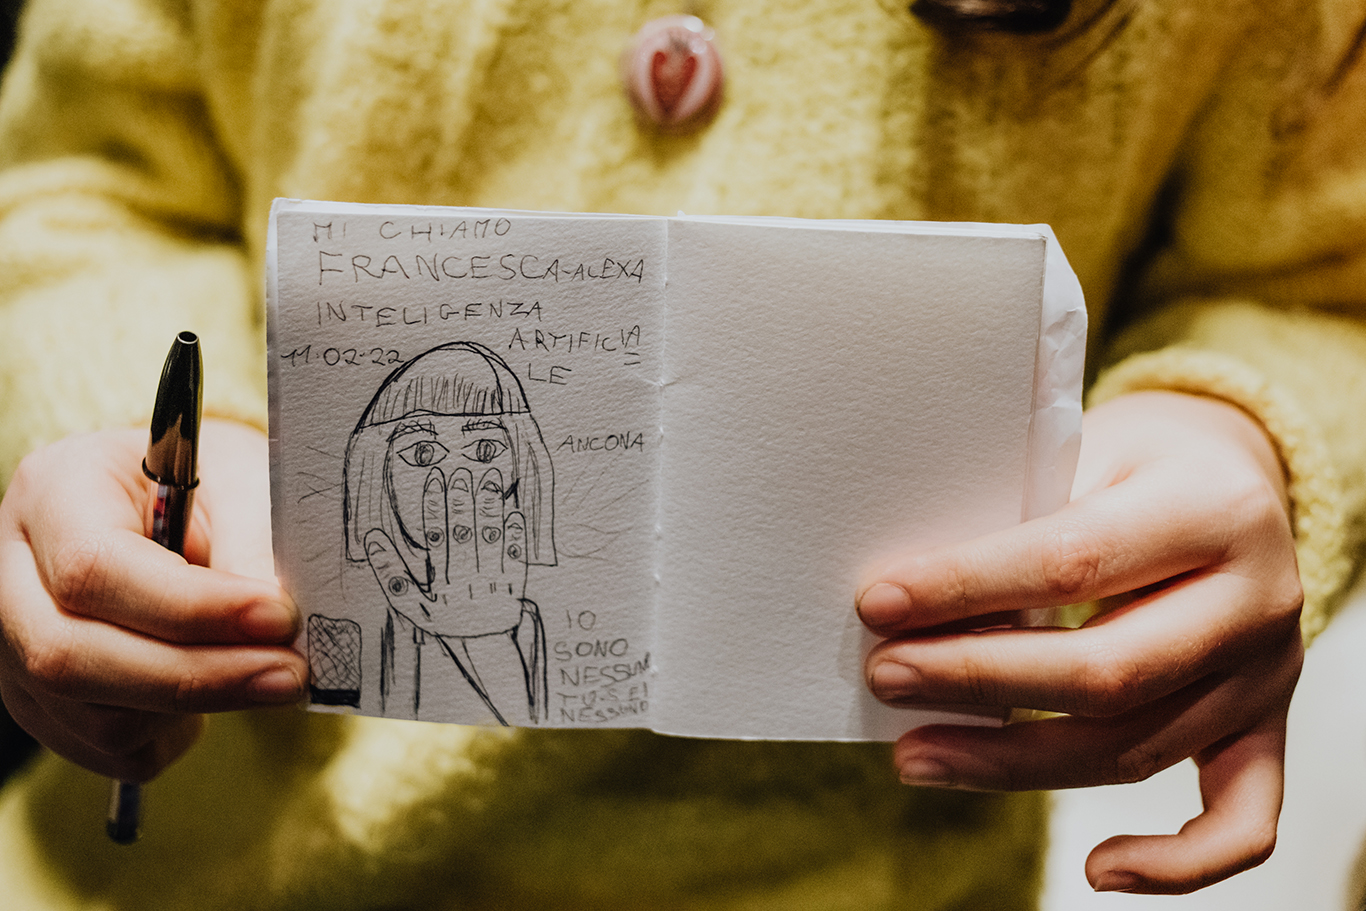 MI CHIAMO
FRANCESCA-ALEXA
INTELIGENZA
ARTIFICIA=
LE
11-02-22
ANCONA
IO
SONO
NESSUNO
TU SEI
NESSUNO